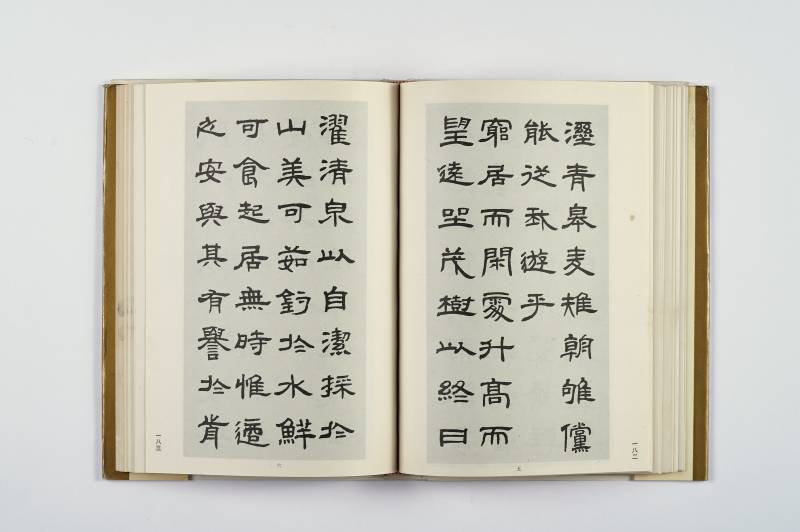 溼青皋麦雉朝雊儻
能從我遊乎
窮居而閑處升高而
望遠坐茂樹以終日
五
一八二
濯清泉以自潔採於
山美可茹釣於水鮮
可食起居無時惟適
之安與其有譽於前
六
一八三